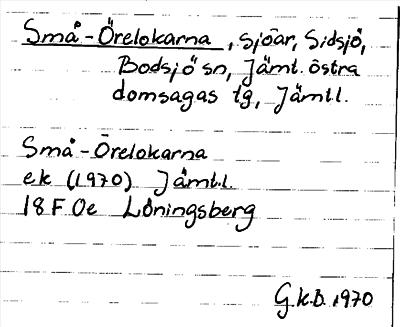 Små-Örelokarna, sjöar, Sidsjö,
Bodsjö sn, Jämt. östra
domsagas tg, Jämtl.
Små-Örelokarna
ek (1970) Jämtl.
18F 0e Löningsberg
G.K.B. 1970